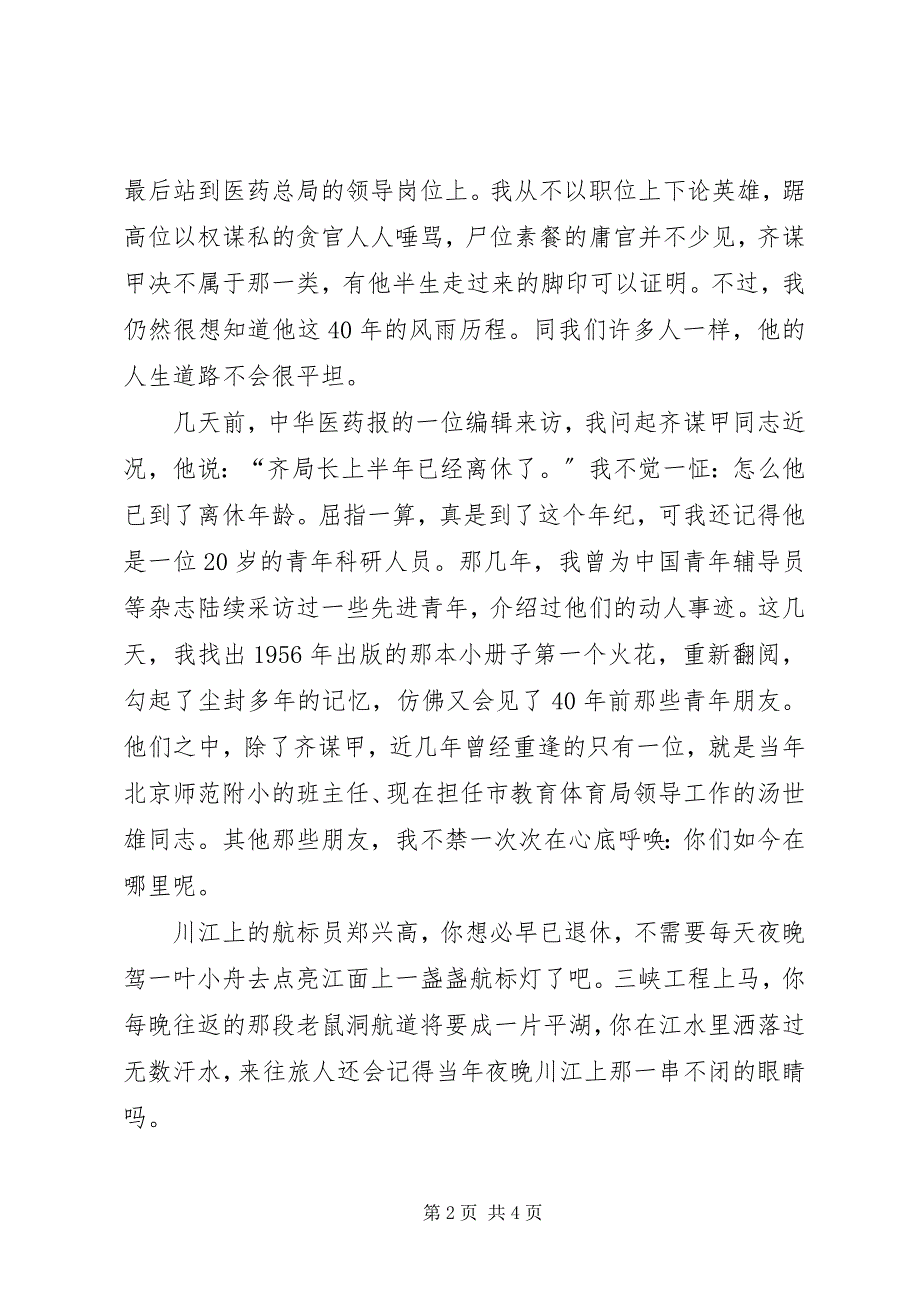 最后站到医药总局的领导岗位上。我从不以职位上下论英雄，踞
高位以权谋私的贪官人人唾骂，尸位素餐的庸官并不少见，齐谋
甲决不属于那一类，有他半生走过来的脚印可以证明。不过，我
仍然很想知道他这 40 年的风雨历程。同我们许多人一样，他的
人生道路不会很平坦。
几天前，中华医药报的一位编辑来访，我问起齐谋甲同志近
况，他说：“齐局长上半年已经离休了。〞我不觉一怔：怎么他
已到了离休年龄。屈指一算，真是到了这个年纪，可我还记得他
是一位 20 岁的青年科研人员。那几年，我曾为中国青年辅导员
等杂志陆续采访过一些先进青年，介绍过他们的动人事迹。这几
天，我找出 1956 年出版的那本小册子第一个火花，重新翻阅，
勾起了尘封多年的记忆，仿佛又会见了 40 年前那些青年朋友。
他们之中，除了齐谋甲，近几年曾经重逢的只有一位，就是当年
北京师范附小的班主任、现在担任市教育体育局领导工作的汤世
雄同志。其他那些朋友，我不禁一次次在心底呼唤：你们如今在
哪里呢。
川江上的航标员郑兴高，你想必早已退休，不需要每天夜晚
驾一叶小舟去点亮江面上一盏盏航标灯了吧。三峡工程上马，你
每晚往返的那段老鼠洞航道将要成一片平湖，你在江水里洒落过
无数汗水，来往旅人还会记得当年夜晚川江上那一串不闭的眼睛
吗。
第 2 页 共 4 页